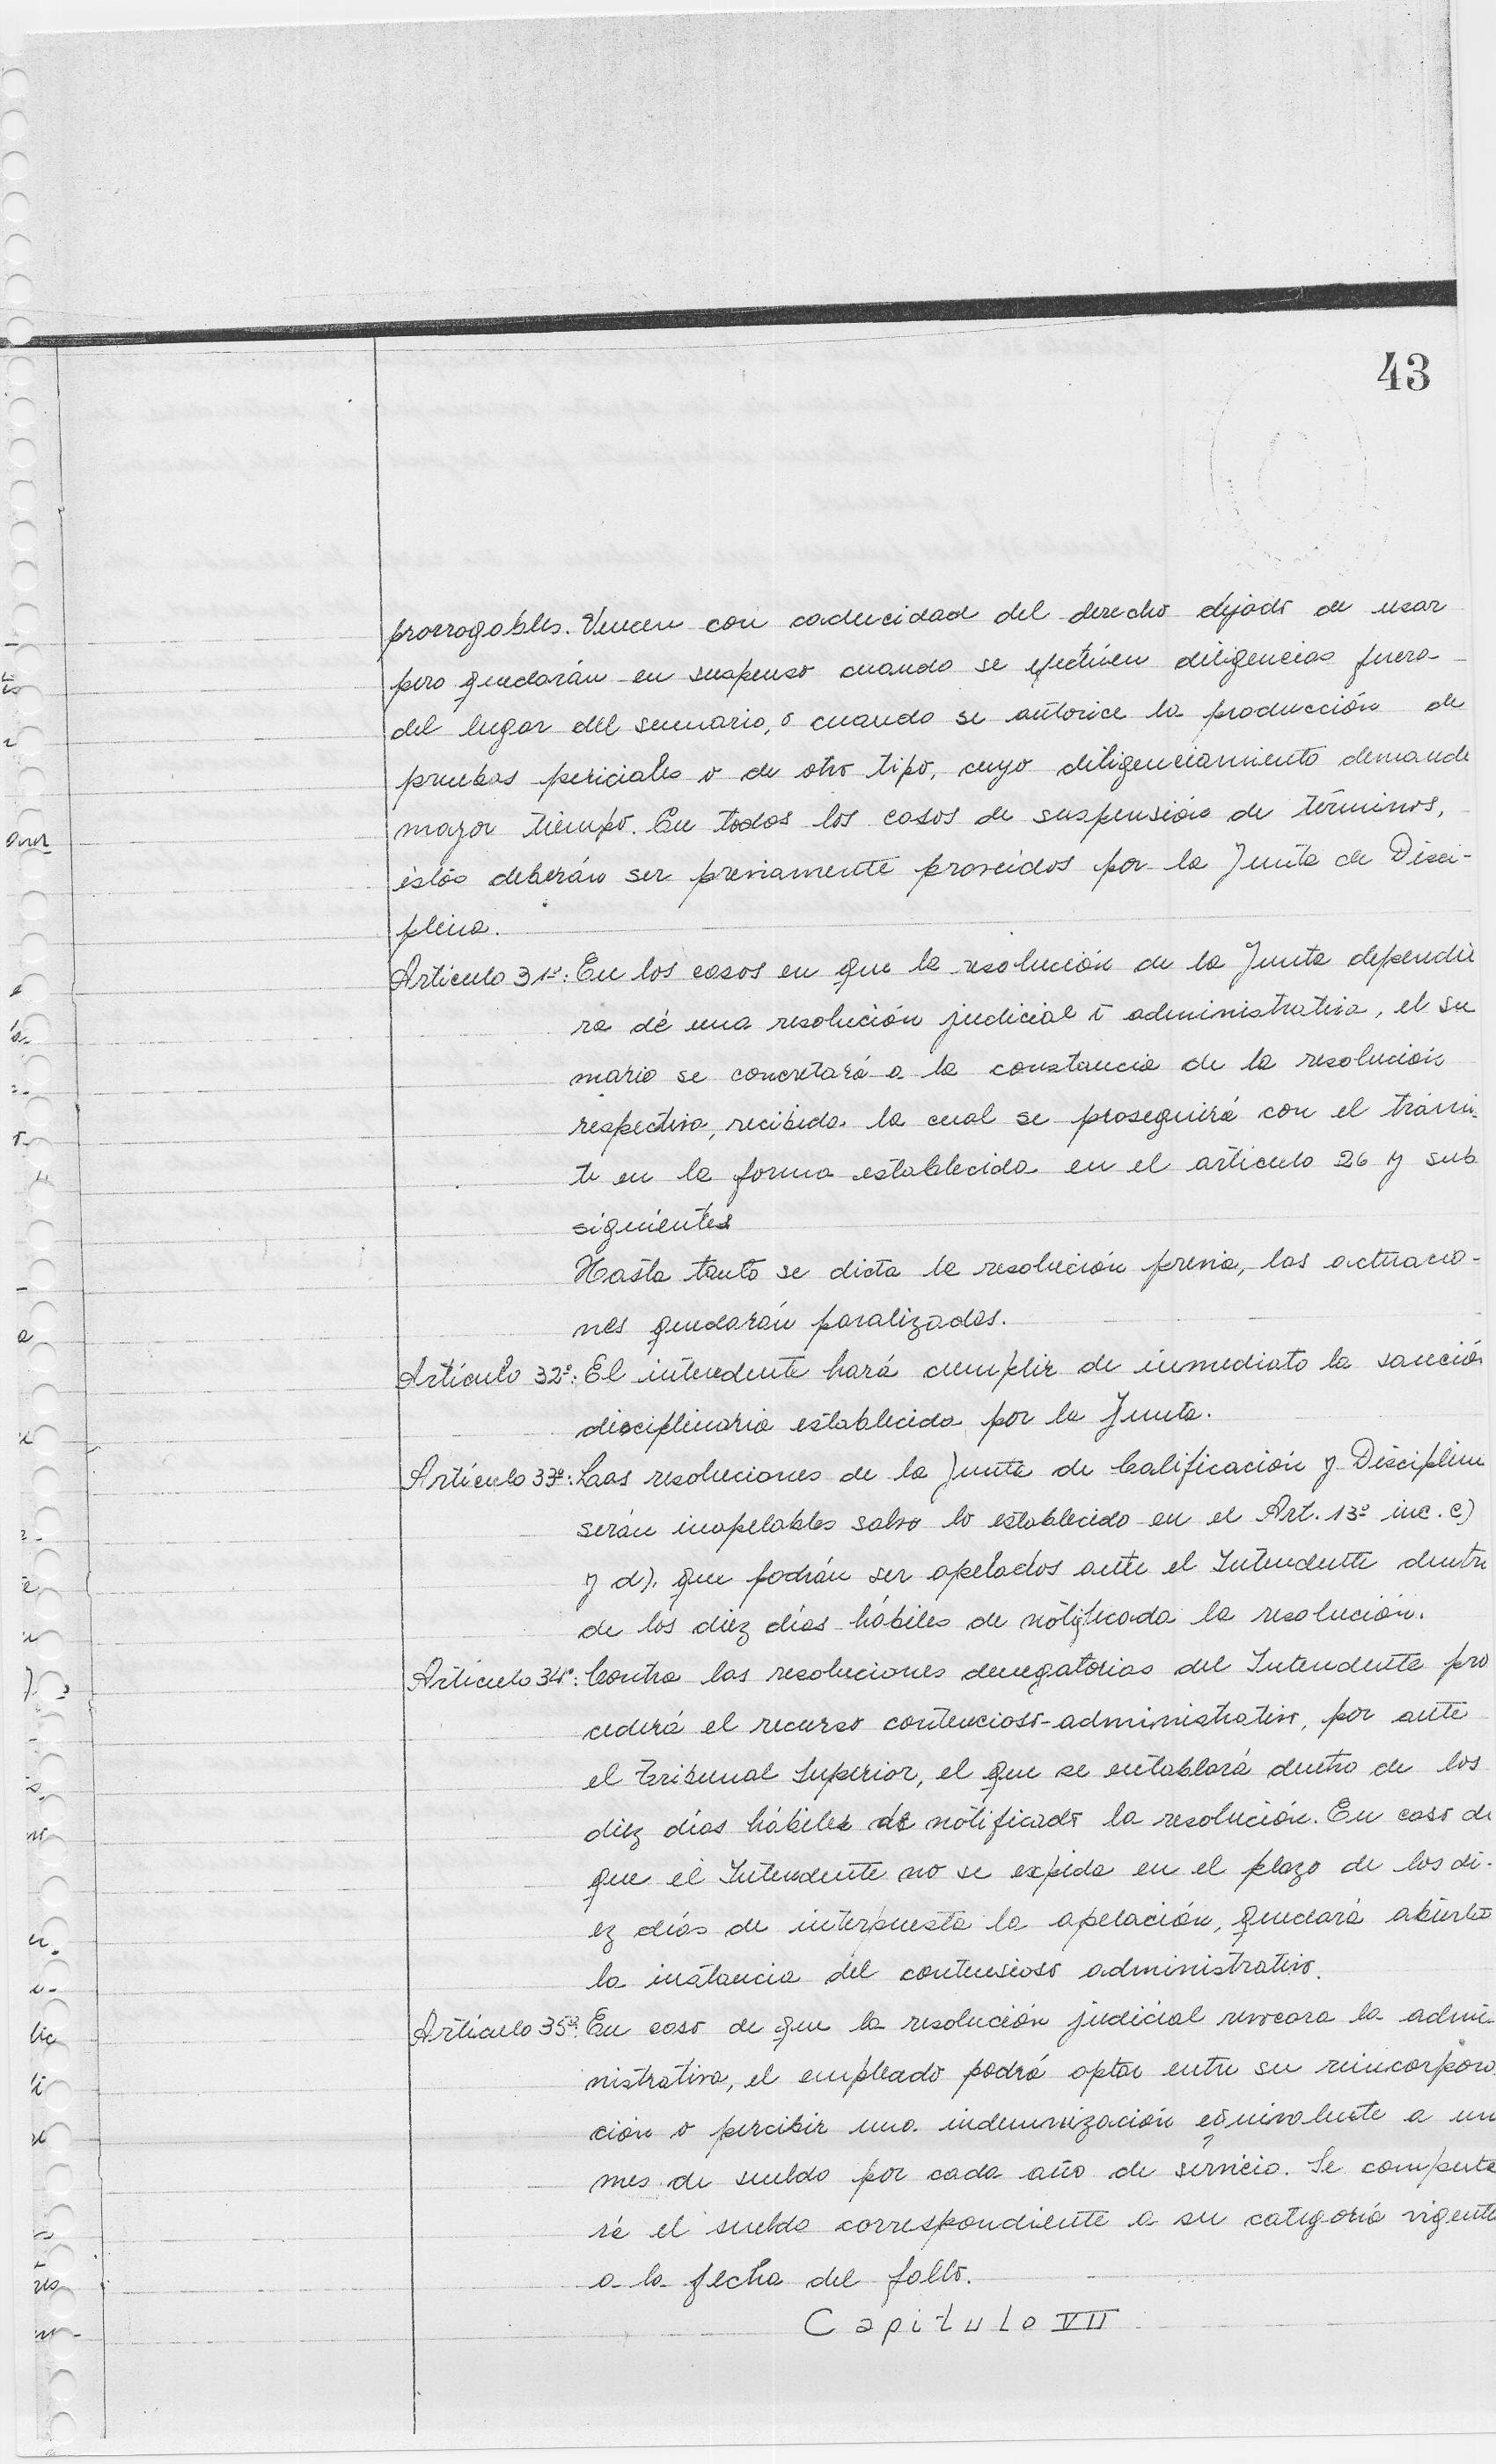 43
prorrogables. Vencen con caducidad del derecho dejado de usar
pero quedarán en suspenso cuando se efectúen diligencias fuera
del lugar del sumario, o cuando se autorice la producción de
pruebas periciales o de otro tipo, cuyo diligenciamiento demande
mayor tiempo. En todos los casos de suspensión de términos,
éstos deberán ser previamente proveídos por la Junta de Disci-
plina.
Artículo 31º: En los casos en que la resolución de la Junta dependie
ra de una resolución judicial o administrativa, el su
mario se concretará a la constancia de la resolución
respectiva, recibida la cual se proseguirá con el trámi-
te en la forma establecida en el artículo 26 y sub
siguientes
Hasta tanto se dicta la resolución previa, las actuacio-
nes quedarán paralizadas.
Artículo 32º: El intendente hará cumplir de inmediato la sanción
disciplinaria establecida por la Junta.
Artículo 33º: Las resoluciones de la Junta de Calificación y Disciplina
serán inapelables salvo lo establecido en el Art. 13º inc. c)
y d). que podrán ser apelados ante el Intendente dentro
de los diez días hábiles de notificada la resolución.
Artículo 34º: Contra las resoluciones denegatorias del Intendente pro
cederá el recurso contencioso-administrativo, por ante
el tribunal Superior, el que se entablará dentro de los
diez días hábiles de notificado la resolución. En caso de
que el Intendente no se expida en el plazo de los di-
ez días de interpuesta la apelación, quedará abierta
la instancia del contensioso administrativo.
Artículo 35º: En caso de que la resolución judicial revocara la admi-
nistrativa, el empleado podrá optar entre su reincorpora
ción o percibir una indemnización equivalente a un
mes de sueldo por cada año de servicio. Se computa
rá el sueldo correspondiente a su categoría vigente
a la fecha del fallo.
Capitulo VII